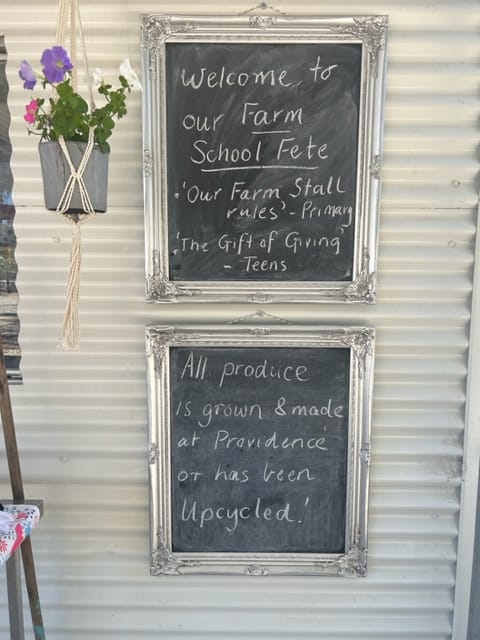 Welcome to
our Farm
School Fete
• 'Our Farm Stall
rules' - Primary
• 'The Gift of Giving'
- Teens
All produce
is grown & made
at Providence
or has been
Upcycled!